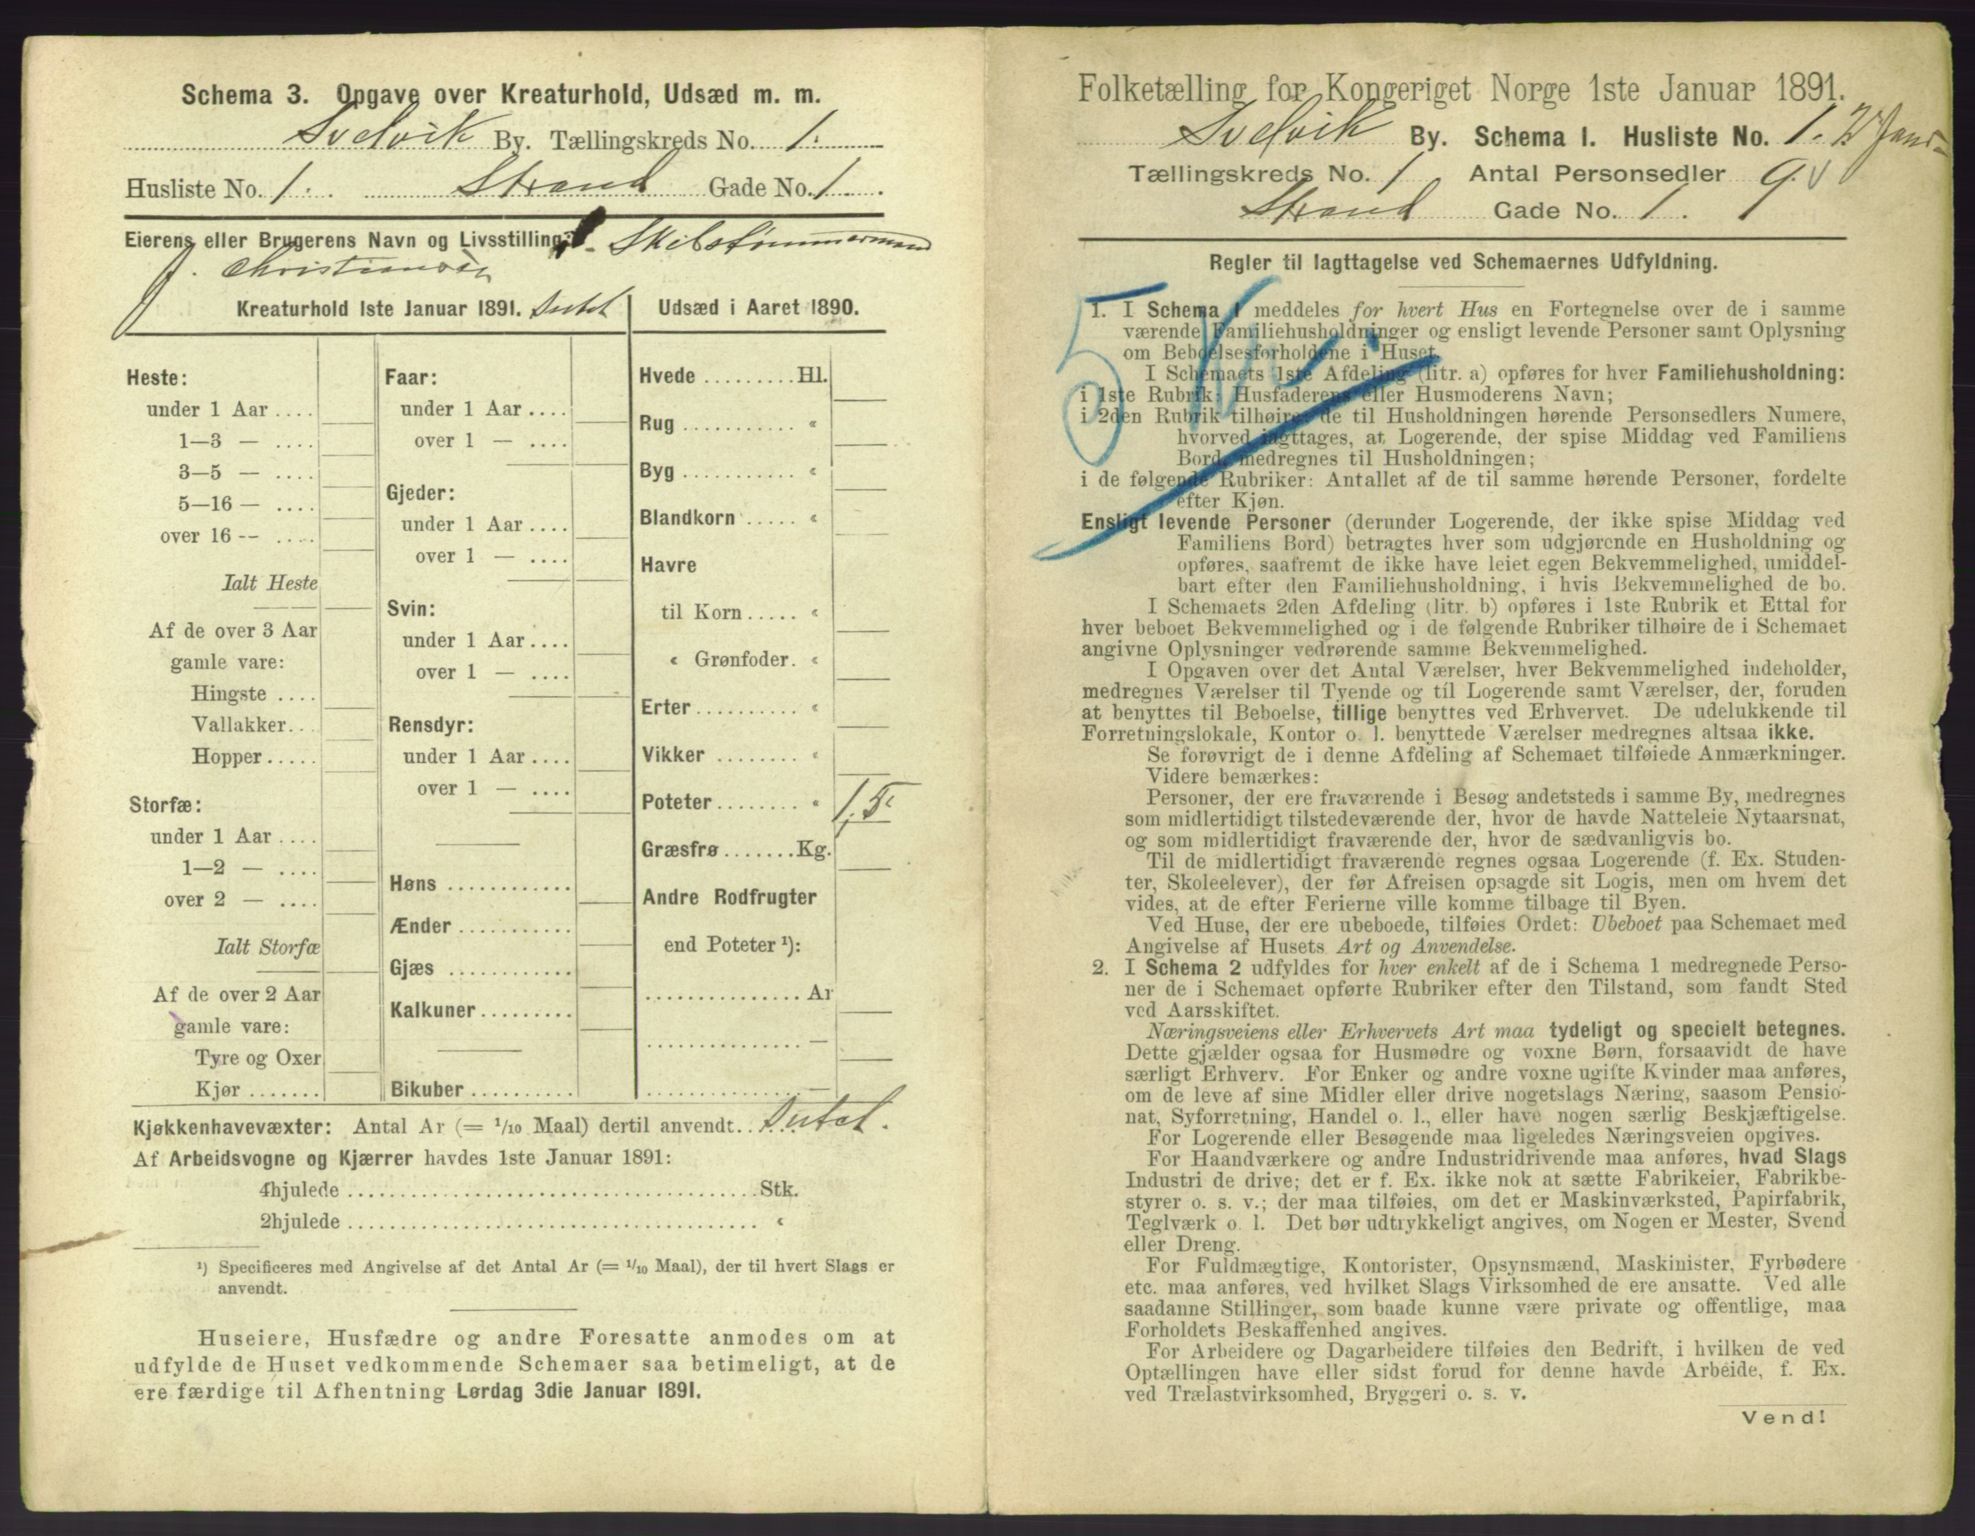 Schema 3. Opgave over Kreaturhold, Udsæd m. m.
Svelvik By. Tællingskreds No. 1.
Husliste No. 1. Strand Gade No. 1.
Eierens eller Brugerens Navn og Livsstilling: Skibstømmermand
J. Christiansen
Kreaturhold 1ste Januar 1891. Intet
Heste:
under 1 Aar ....
1—3 — ....
3—5 — ....
5—16 — ....
over 16 -- ....
Ialt Heste
Af de over 3 Aar
gamle vare:
Hingste ....
Vallakker...
Hopper.....
Storfæ:
under 1 Aar ....
1—2 — ....
over 2 — ....
Ialt Storfæ
Af de over 2 Aar
gamle vare:
Tyre og Oxer
Kjør .......
Faar:
under 1 Aar ....
over 1 — ....
Gjeder:
under 1 Aar ....
over 1 — ....
Svin:
under 1 Aar ....
over 1 — ....
Rensdyr:
under 1 Aar ....
over 1 — ....
Høns ............
Ænder ...........
Gjæs ............
Kalkuner.........
Bikuber..........
Udsæd i Aaret 1890.
Hvede .........Hl.
Rug ........... «
Byg ........... «
Blandkorn ..... «
Havre
til Korn ..... «
« Grønfoder. «
Erter.......... «
Vikker ........ «
Poteter........ « 1,5
Græsfrø .......Kg.
Andre Rodfrugter
end Poteter ¹):
............... Ar
............... —
............... —
Kjøkkenhavevæxter: Antal Ar (= 1/10 Maal) dertil anvendt.. Intet.
Af Arbeidsvogne og Kjærrer havdes 1ste Januar 1891:
4hjulede ........................................Stk.
2hjulede ........................................ «
¹) Specificeres med Angivelse af det Antal Ar (= 1/10 Maal), der til hvert Slags er
anvendt.
Huseiere, Husfædre og andre Foresatte anmodes om at
udfylde de Huset vedkommende Schemaer saa betimeligt, at de
ere færdige til Afhentning Lørdag 3die Januar 1891.
Folketælling for Kongeriget Norge 1ste Januar 1891.
Svelvik By. Schema 1. Husliste No. 1.
Tællingskreds No. 1 Antal Personsedler 9.
Strand Gade No. 1.
Regler til Iagttagelse ved Schemaernes Udfyldning.
1. I Schema 1 meddeles for hvert Hus en Fortegnelse over de i samme
værende Familiehusholdninger og ensligt levende Personer samt Oplysning
om Beboelsesforholdene i Huset.
I Schemaets 1ste Afdeling (litr. a) opføres for hver Familiehusholdning:
i 1ste Rubrik: Husfaderens eller Husmoderens Navn;
i 2den Rubrik tilhøire: de til Husholdningen hørende Personsedlers Numere,
hvorved iagttages, at Logerende, der spise Middag ved Familiens
Bord, medregnes til Husholdningen;
i de følgende Rubriker: Antallet af de til samme hørende Personer, fordelte
efter Kjøn.
Ensligt levende Personer (derunder Logerende, der ikke spise Middag ved
Familiens Bord) betragtes hver som udgjørende en Husholdning og
opføres, saafremt de ikke have leiet egen Bekvemmelighed, umiddel-
bart efter den Familiehusholdning, i hvis Bekvemmelighed de bo.
I Schemaets 2den Afdeling (litr. b) opføres i 1ste Rubrik et Ettal for
hver beboet Bekvemmelighed og i de følgende Rubriker tilhøire de i Schemaet
angivne Oplysninger vedrørende samme Bekvemmelighed.
I Opgaven over det Antal Værelser, hver Bekvemmelighed indeholder,
medregnes Værelser til Tyende og til Logerende samt Værelser, der, foruden
at benyttes til Beboelse, tillige benyttes ved Erhvervet. De udelukkende til
Forretningslokale, Kontor o. l. benyttede Værelser medregnes altsaa ikke.
Se forøvrigt de i denne Afdeling af Schemaet tilføiede Anmærkninger.
Videre bemærkes:
Personer, der ere fraværende i Besøg andetsteds i samme By, medregnes
som midlertidigt tilstedeværende der, hvor de havde Natteleie Nytaarsnat,
og som midlertidigt fraværende der, hvor de sædvanligvis bo.
Til de midlertidigt fraværende regnes ogsaa Logerende (f. Ex. Studen-
ter, Skoleelever), der før Afreisen opsagde sit Logis, men om hvem det
vides, at de efter Ferierne ville komme tilbage til Byen.
Ved Huse, der ere ubeboede, tilføies Ordet: Ubeboet paa Schemaet med
Angivelse af Husets Art og Anvendelse.
2. I Schema 2 udfyldes for hver enkelt af de i Schema 1 medregnede Perso-
ner de i Schemaet opførte Rubriker efter den Tilstand, som fandt Sted
ved Aarsskiftet.
Næringsveiens eller Erhvervets Art maa tydeligt og specielt betegnes.
Dette gjælder ogsaa for Husmødre og voxne Børn, forsaavidt de have
særligt Erhverv. For Enker og andre voxne ugifte Kvinder maa anføres,
om de leve af sine Midler eller drive nogetslags Næring, saasom Pensio-
nat, Syforretning, Handel o. l., eller have nogen særlig Beskjæftigelse.
For Logerende eller Besøgende maa ligeledes Næringsveien opgives.
For Haandværkere og andre Industridrivende maa anføres, hvad Slags
Industri de drive; det er f. Ex. ikke nok at sætte Fabrikeier, Fabrikbe-
styrer o. s. v.; der maa tilføies, om det er Maskinværksted, Papirfabrik,
Teglværk o. l. Det bør udtrykkeligt angives, om Nogen er Mester, Svend
eller Dreng.
For Fuldmægtige, Kontorister, Opsynsmænd, Maskinister, Fyrbødere
etc. maa anføres, ved hvilket Slags Virksomhed de ere ansatte. Ved alle
saadanne Stillinger, som baade kunne være private og offentlige, maa
Forholdets Beskaffenhed angives.
For Arbeidere og Dagarbeidere tilføies den Bedrift, i hvilken de ved
Optællingen have eller sidst forud for denne havde Arbeide, f. Ex.
ved Trælastvirksomhed, Bryggeri o. s. v.
Vend!